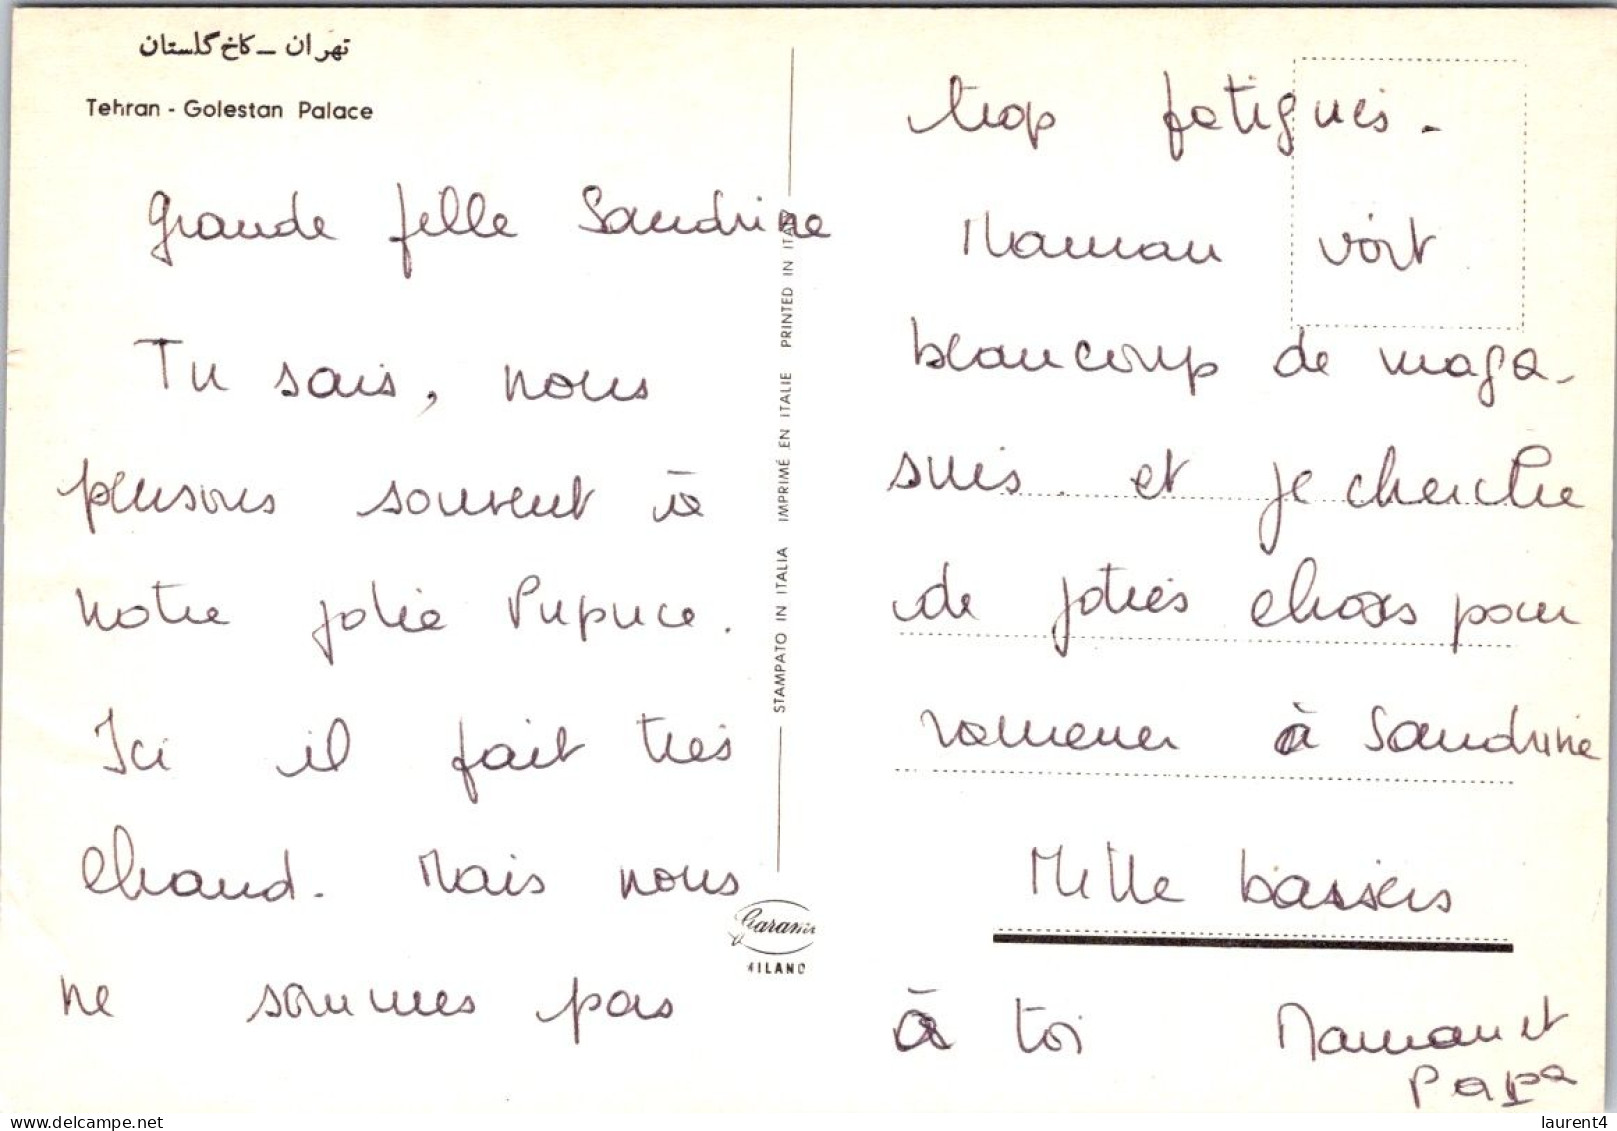 تهران – کاخ گلستان
Tehran - Golestan Palace
Grande fille Sandrine
Tu sais, nous
pensons souvent à
notre jolie Pupuce.
Ici il fait très
chaud. Mais nous
ne sommes pas
STAMPATO IN ITALIA IMPRIMÉ EN ITALIE PRINTED IN ITALY
Garami
MILANO
trop fatigués -
Maman voit
beaucoup de maga-
sins et je cherche
de jolies choses pour
ramener à Sandrine
Mille baisers
à toi Maman et
Papa
laurent4